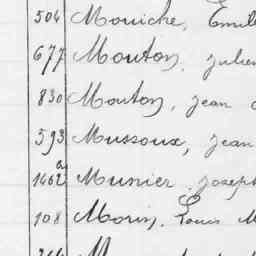 504 Mouiche, Emil
677 Mouton, julien
830 Mouton, jean
593 Mussoux, jean
1462 a Munier, joseph
108 Morin, Louis M